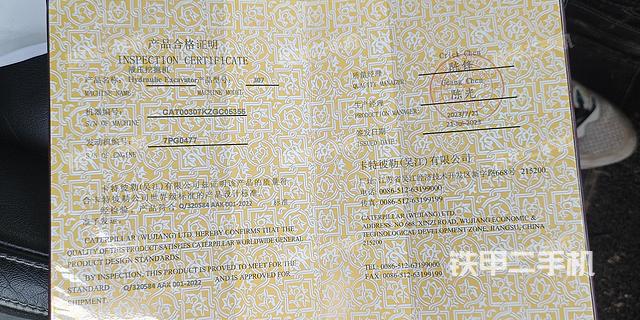 产品合格证明
INSPECTION CERTIFICATE
液压挖掘机
产品名称: Hydraulic Excavator 产品型号: 307
MACHINE NAME: MACHINE MODEL
机器编号: CAT00307KZGC05355
S/N OF MACHINE
发动机编号: 7PG0477
S/N OF ENGINE
卡特彼勒(吴江)有限公司兹证明该产品的质量符
合卡特彼勒公司世界级标准的产品设计标准。
经检验,产品符合 Q/320584 AAK 001-2022 标准
CATERPILLAR (WUJIANG) LTD. HEREBY CONFIRMS THAT THE
QUALITY OF THIS PRODUCT SATISFIES CATERPILLAR WORLDWIDE GENERAL
PRODUCT DESIGN STANDARDS.
BY INSPECTION, THIS PRODUCT IS PROVED TO MEET FOR THE
STANDARD Q/320584 AAK 001-2022 AND IS APPROVED FOR
SHIPMENT.
Chen
质量经理:
QUALITY MANAGER:
Chen
生产经理
PRODUCTION MANAGER:
2023/7/21
签发日期
ISSUED DATE:
卡特彼勒(吴江)有限公司
668号 215200
电话: 0086-512-63199000
传真: 0086-512-63199199
CATERPILLAR (WUJIANG) LTD.
ADDRESS: NO 668, XINZI ROAD, WUJIANG ECONOMIC &
TECHNOLOGICAL DEVELOPMENT ZONE, JIANGSU, CHINA
215200
TEL: 0086-512-63199000
FAX: 0086-512-63199199
铁甲二手机